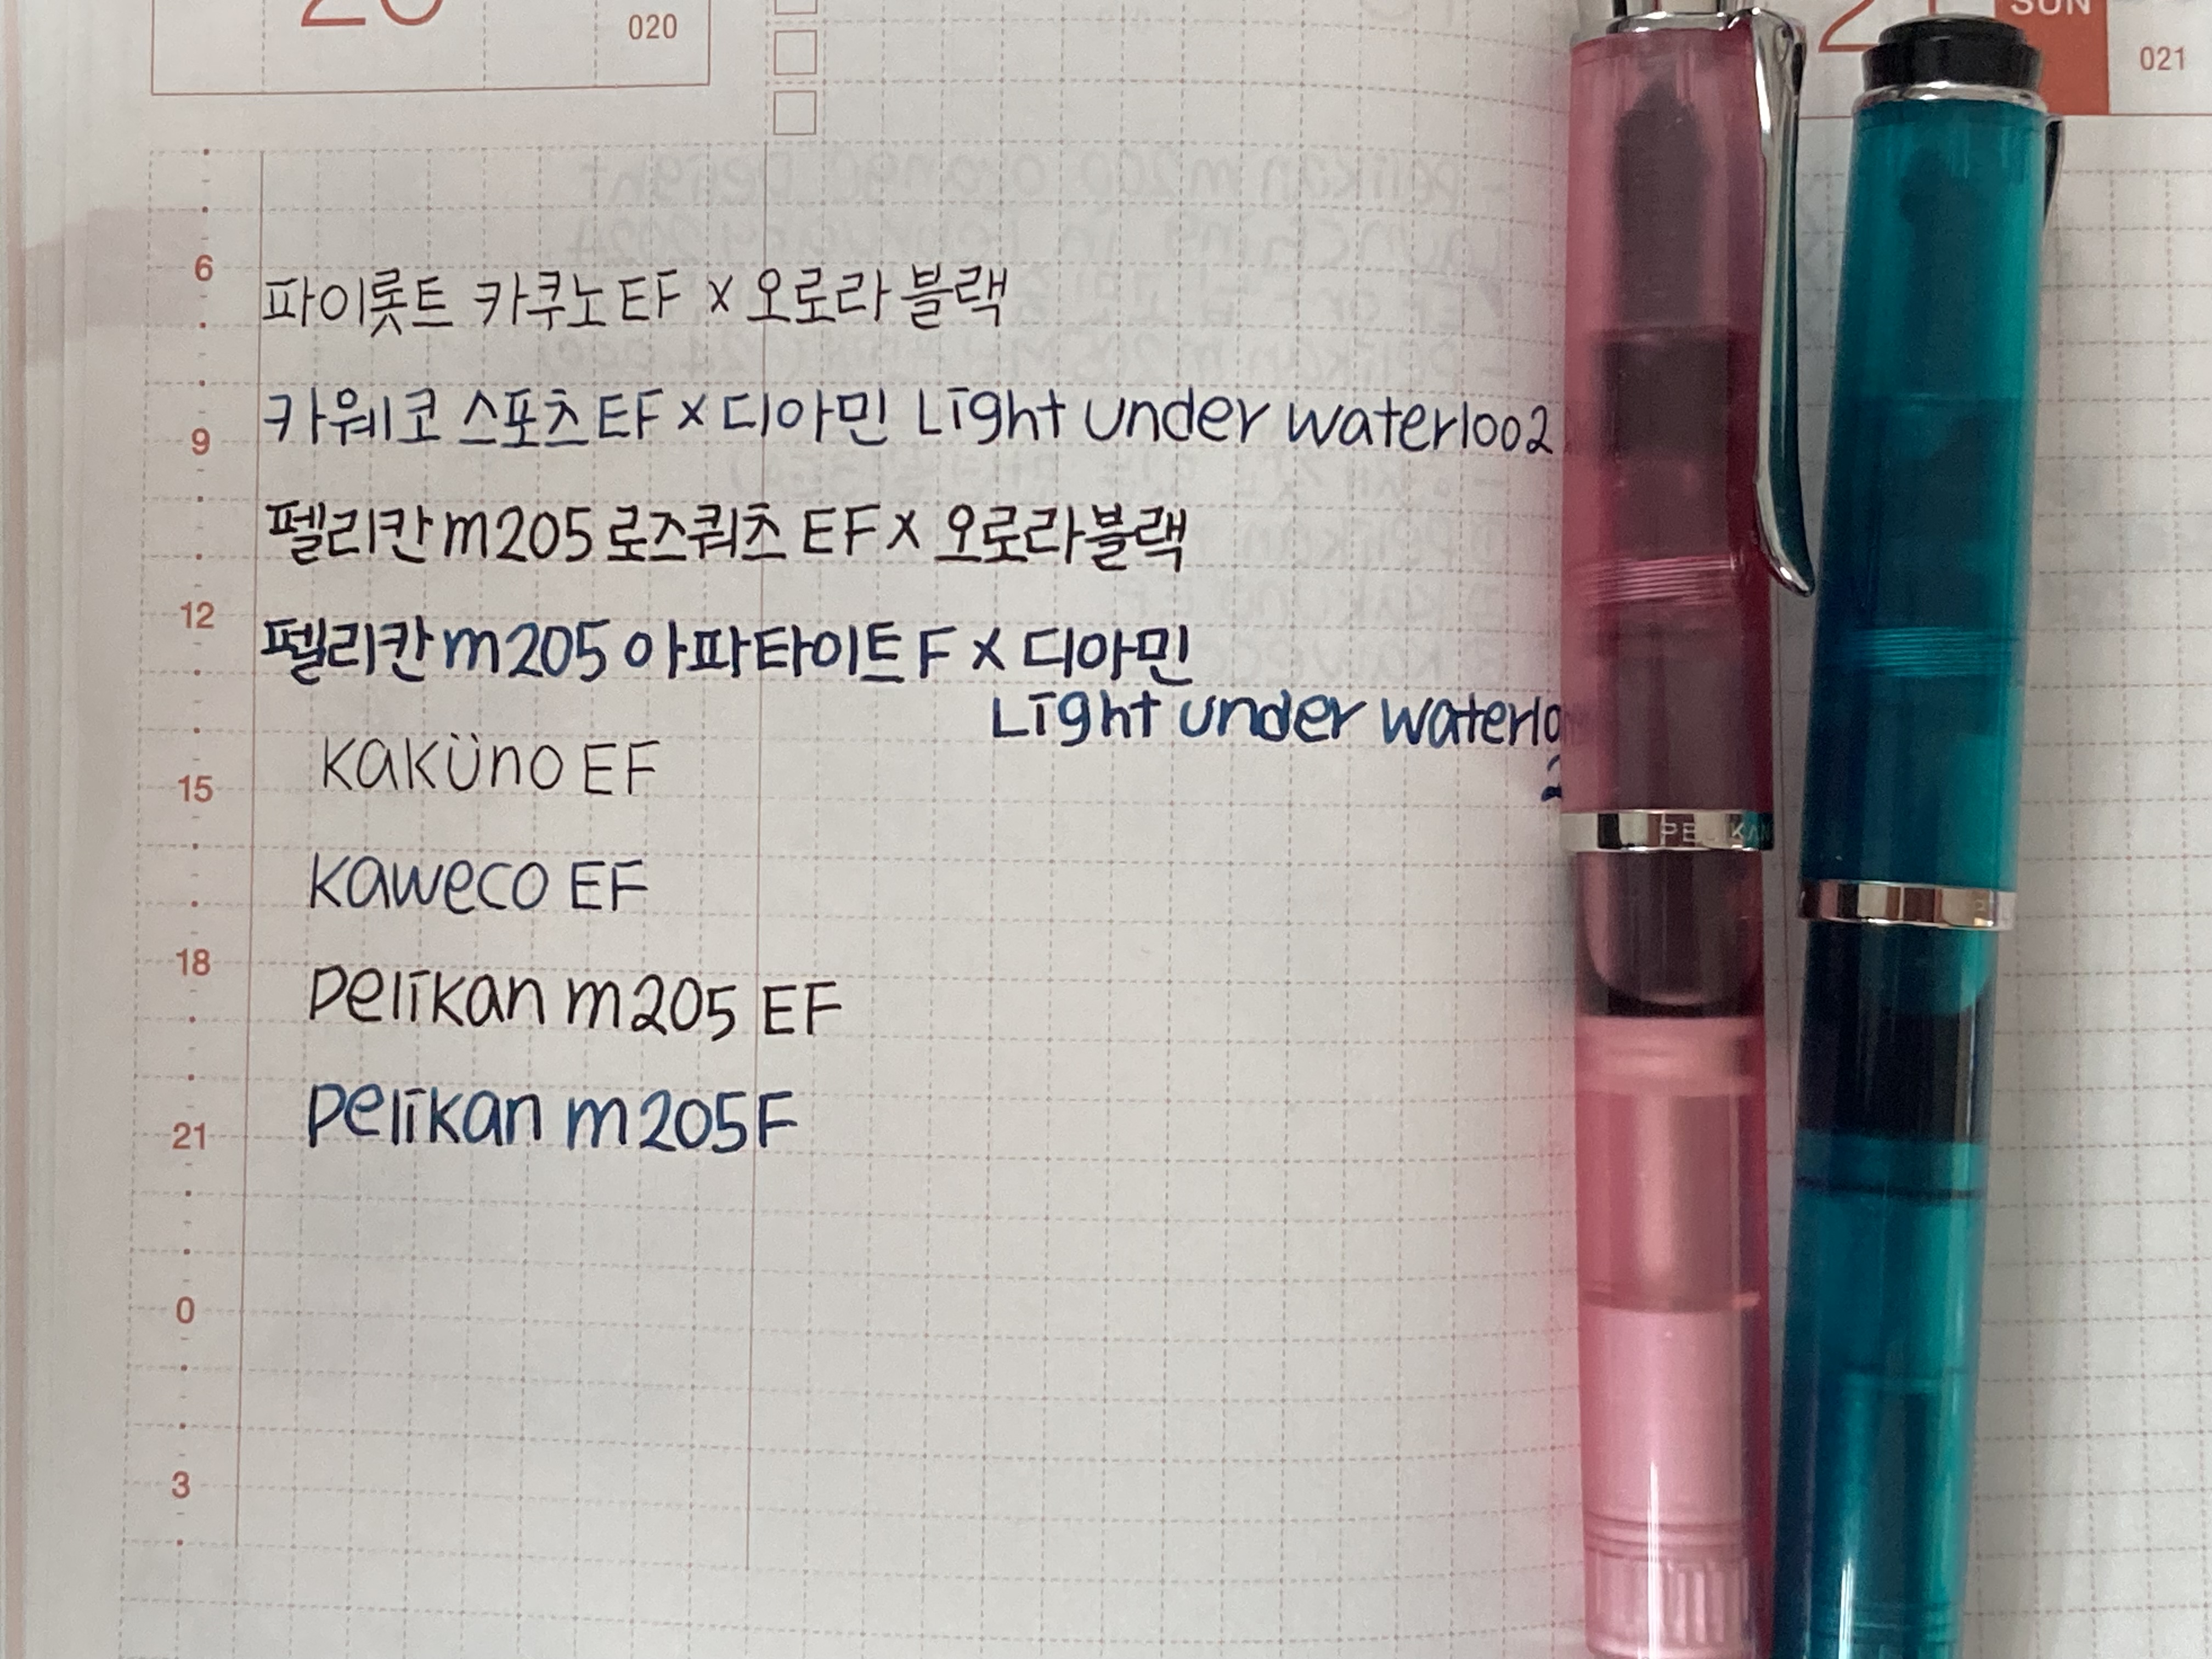 020
SUN
021
6
파이롯트 카쿠노 EF x 오로라 블랙
9
카웨코 스포츠 EF x 디아민 Light under waterloo 2
펠리칸 m205 로즈쿼츠 EF x 오로라 블랙
12
펠리칸 m205 아파타이트 F x 디아민
Light under waterlo
2
Kaküno EF
15
Kaweco EF
18
Pelikan m205 EF
21
Pelikan m205 F
0
3
PELIKAN